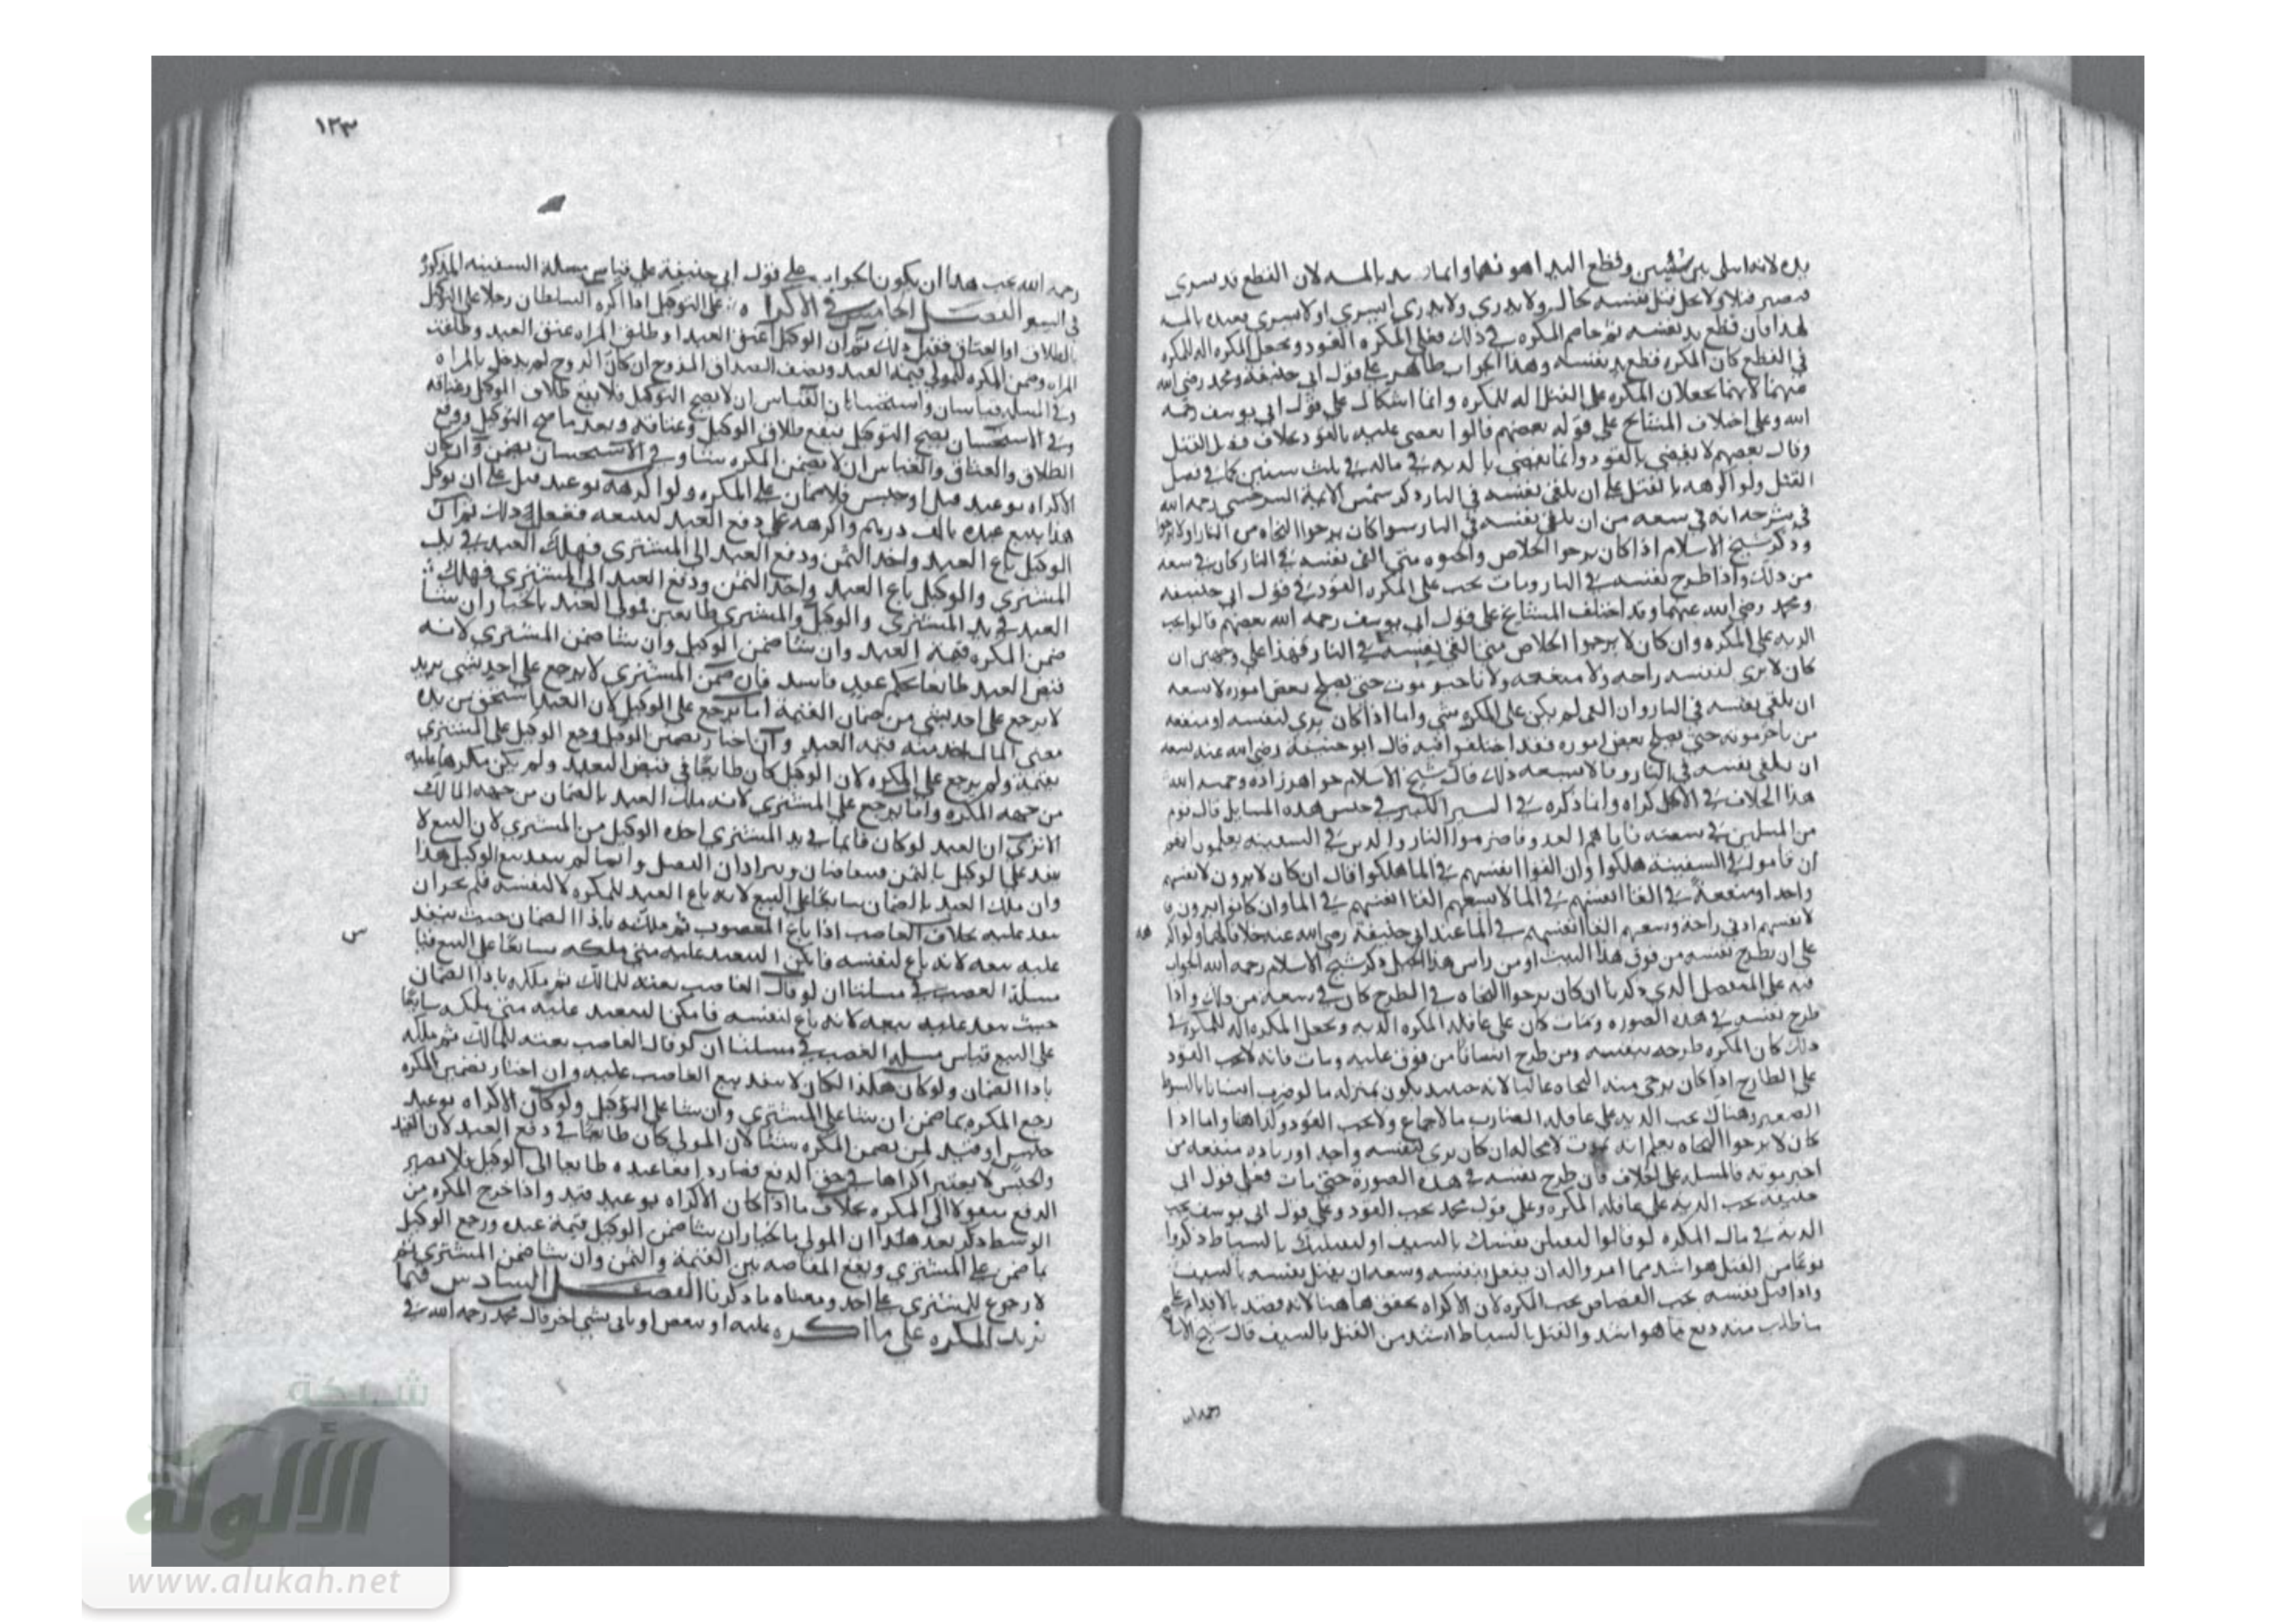 يده لانه ابتلى بين شيئين وقطع اليد اهونهما وانما بالمسه لان القطع قد سرى
فيصير قتلا ولا يحل قتل نفسه بحال ولا يدري ولا يدري ايسري او لا يسري
لهذا فان قطع يد نفسه ثم خاصم المكره في ذلك فعلى المكره القود ويجعل المكره اله للمكره
في القطع كان المكره قطع يد نفسه وهذا الجواب ظاهر على قول ابي حنيفة ومحمد رضي الله
عنهما لانهما يجعلان المكره على القتل اله للمكره وانما اشكال على قول ابي يوسف رحمه
الله وعلى اختلاف المشايخ على قوله بعضهم قالوا يقضى عليه بالقود بخلاف فصل القتل
وقال بعضهم لا يقضى بالقود وانما يقضى بالدية في ماله في ثلث سنين كما في فصل
القتل ولو اكرهه بالقتل على ان يلقي نفسه في النار ذكر شمس الايمة السرخسي رحمه الله
في شرحه انه في سعه من ان يلقي نفسه في النار سواكان يرجوا النجاه من النار اولا يرجوا
وذكر شيخ الاسلام اذا كان يرجوا الخلاص والحيوه متى القى نفسه في النار كان في سعه
من ذلك واذا طرح نفسه في النار ومات يجب على المكره القود في قول ابي حنيفه
ومحمد رضي الله عنهما وقد اختلف المشايخ على قول ابي يوسف رحمه الله بعضهم قالوا يجب
الديه على المكره وان كان لا يرجوا الخلاص متى القى نفسه في النار فهذا على وجهين ان
كان لا يرى لنفسه راحه ولا منفعه ولا تاخير موت حتى يصلح بعض اموره لا يسعه
ان يلقي نفسه في النار وان القى لم يكن على المكره شي واما اذا كان يرى لنفسه او منفعه
من تاخر موته حتى يصلح بعض اموره فقد اختلفوا فيه قال ابو حنيفة رضي الله عنه يسعه
ان يلقي نفسه في النار وقالا لا يسعه ذلك قال شيخ الاسلام خواهرزاده رحمه الله
هذا الخلاف في الاكراه وانما ذكره في السير الكبير في جنس هذه المسايل قال قوم
من المسلمين في سفينه فاتاهم العدو فاضرموا النار والدين في السفينه يعلمون انهم
ان قاموا في السفينة هلكوا وان القوا انفسهم في الما هلكوا قال ان كان لا يرون لانفسهم
واحدا ومنفعة في القا انفسهم في الما لا يسعهم القا انفسهم في الما وان كانوا يرون
لانفسهم ادنى راحة وسعهم القا انفسهم في الما عند ابي حنيفة رضي الله عنه خلافا لهما ولو اكره
على ان يطرح نفسه من فوق هذا البيت او من راس هذا الجبل ذكر شيخ الاسلام رحمه الله الجواب
فيه على التفصيل الذي ذكرنا ان كان يرجوا النجاه في الطرح كان في سعة من ذلك واذا
طرح نفسه في هذه الصوره ومات كان على عاقلة المكره الديه ويجعل المكره اله للمكره في
ذلك كان المكره طرحه بنفسه ومن طرح انسانا من فوق عليه ومات فانه لا يجب القود
على الطارح اذا كان يرجى منه النجاه غالبا لانه حينيد يكون بمنزله ما لو ضرب انسانا بالسوط
الصغير وهناك يجب الديه على عاقلة الضارب بالاجماع ولا يجب القود وكذا هنا واما اذا
كان لا يرجوا النجاه يعلم انه يموت لا محاله ان كان يرى لنفسه واحد او زياده منفعه من
اخير موته فالمسله على الخلاف فان طرح نفسه في هذه الصورة حتى مات فعلى قول ابي
حنيفه يجب الديه على عاقلة المكره وعلى قول محمد يجب القود وعلى قول ابي يوسف يجب
الدية في مال المكره لو قالوا لتقتلن نفسك بالسيف او لنقتلنك بالسياط ذكروا
نوعا من القتل هو اشد مما امروا له ان يفعل بنفسه وسعه ان يقتل نفسه بالسيف
واذا قتل نفسه يجب القصاص يجب المكره لان الاكراه تحقق ها هنا لانه قصد بالاقدام على
ما طلب منه دفع ما هو اشد والقتل بالسياط اشد من القتل بالسيف قال شيخ الاسلام
رحمه الله
١٢٣
رحمه الله يجب هذا ان يكون الجواب على قول ابي حنيفة على قياس مسالة السفينه المذكورة
في السير الفصل الخامس في الاكراه على التوكيل اذا اكره السلطان رجلا على التوكيل
بالطلاق او العتاق ففعل ذلك ثم ان الوكيل اعتق العبد او طلق المراه عتق العبد وطلقت
المراه وضمن المكره للمولى قيمة العبد ونصف الصداق للزوج ان كان الزوج لم يدخل بالمراه
وفي المسله قياسان واستحسانان القياس ان لا يصح التوكيل فلا يقع طلاق الوكيل وعتاقه
وفي الاستحسان يصح التوكيل فيقع طلاق الوكيل وعتاقه وبعد ما صح التوكيل ووقع
الطلاق والعتاق والقياس ان لا يضمن المكره شيا وفي الاستحسان يضمن وان كان
الاكراه بوعيد قيد او حبس فلا ضمان على المكره ولو اكرهه بوعيد قتل على ان يوكل
هذا ببيع عبده بالف درهم واكرهه على دفع العبد ليبيعه ففعل ذلك ثم ان
الوكيل باع العبد واخذ الثمن ودفع العبد الى المشتري فهلك العبد في يد
المشتري والوكيل باع العبد واخذ الثمن ودفع العبد الى المشتري فهلك
العبد في يد المشتري والوكيل والمشتري طايعين لمولى العبد بالخيار ان شا
ضمن المكره قيمة العبد وان شا ضمن الوكيل وان شا ضمن المشتري لانه
قبض العبد طايعا بحكم عقد فاسد فان ضمن المشتري لا يرجع على احد بشي يريد
لا يرجع على احد بشي من ضمان القيمة اما يرجع على الوكيل لان العبد استحق من يده
معنى المالك اخذ منه قيمة العبد وان اختار تضمين الوكيل رجع الوكيل على المشتري
بقيمة ولم يرجع على المكره لان الوكيل كان طايعا في قبض العبد ولم يكن مكرها عليه
من جهة المكره وانما يرجع على المشتري لانه ملك العبد بالضمان من جهة المالك
الا ترى ان العبد لو كان قايما في يد المشتري اخذه الوكيل من المشتري لان البيع لا
ينفذ على الوكيل بالثمن فيتقاصان ويترادان الفضل وانما لم ينفذ بيع الوكيل هذا
وان ملك العبد بالضمان سابقا على البيع لانه باع العبد للمكره لا لنفسه فلم يجز ان
ينفذ عليه بخلاف الغاصب اذا باع المغصوب ثم ملكه باذا الضمان حيث ينفذ
س
عليه بيعه لانه باع لنفسه فامكن التنفيذ عليه متى ملكه سابقا على البيع
مسلة الغصب في مسلتنا ان لو قال الغاصب بعته للمالك ثم ملكه باداا الضمان
حيث ينفذ عليه بيعه لانه باع لنفسه فامكن التنفيذ عليه متى ملكه سابقا
على البيع قياس مسله الغصب في مسلتنا ان لو قال الغاصب بعته للمالك ثم ملكه
باداا الضمان ولو كان هكذا لكان لا ينفذ بيع الغاصب عليه وان اختار تضمين المكره
رجع المكره بما ضمن ان شا على المشتري وان شا على الوكيل ولو كان الاكراه بوعيد
حبس او قيد لمن يضمن المكره شيئا لان المولى كان طايعا في دفع العبد لان القيد
والحبس لا يعتبر اكراها في حق الدفع فصار دافعا عبده طايعا الى الوكيل فلا يصير
الدفع منقولا الى المكره بخلاف ما اذا كان الاكراه بوعيد قيد واذا خرج المكره من
الوسط ذكر بعد هذا ان المولى بالخيار ان شا ضمن الوكيل قيمة عبده ورجع الوكيل
بما ضمن على المشتري ويقع المقاصه بين القيمة والثمن وان شا ضمن المشتري ثم
لا رجوع للمشتري على احد ومعناه ما ذكرنا الفصل السادس فيما
يزيد المكره على ما اكره عليه او ينقص او ياتي بشي اخر قال محمد رحمه الله في
شبكة
الألوكة
www.alukah.net